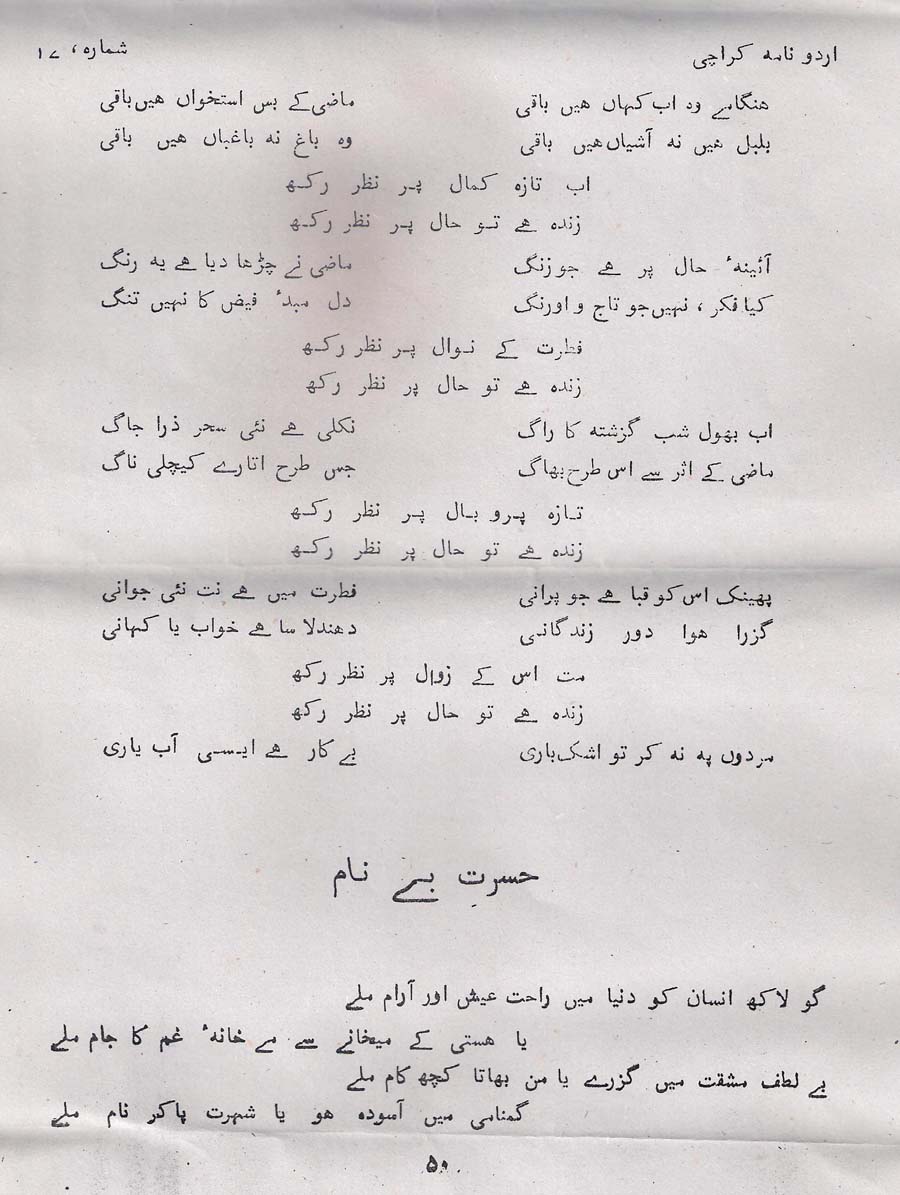 اردو نامه کراچی
شماره، ۱۷
هنگامے وہ اب کہاں هیں باقی
ماضی کے بس استخواں هیں باقی
بلبل هیں نہ آشیاں هیں باقی
وہ باغ نہ باغباں هیں باقی
اب تازہ کمال پر نظر رکھ
زندہ هے تو حال پر نظر رکھ
آئینۂ حال پر هے جو زنگ
ماضی نے چڑها دیا هے یہ رنگ
کیا فکر، نہیں جو تاج و اورنگ
دل مبدۂ فیض کا نہیں تنگ
فطرت کے نوال پر نظر رکھ
زندہ هے تو حال پر نظر رکھ
اب بھول شب گزشتہ کا راگ
نکلی هے نئی سحر ذرا جاگ
ماضی کے اثر سے اس طرح بھاگ
جس طرح اتارے کیچلی ناگ
تازہ پر و بال پر نظر رکھ
زندہ هے تو حال پر نظر رکھ
پھینک اس کو قبا هے جو پرانی
فطرت میں هے نت نئی جوانی
گزرا هوا دور زندگانی
دھندلا سا هے خواب یا کہانی
مت اس کے زوال پر نظر رکھ
زندہ هے تو حال پر نظر رکھ
مردوں پہ نہ کر تو اشک باری
بے کار هے ایسی آب یاری
حسرتِ بے نام
گو لاکھ انسان کو دنیا میں راحت عیش اور آرام ملے
یا هستی کے میخانے سے مے خانۂ غم کا جام ملے
بے لطف مشقت میں گزرے یا من بھاتا کچھ کام ملے
گمنامی میں آسودہ هو یا شہرت پاکر نام ملے
۵۰